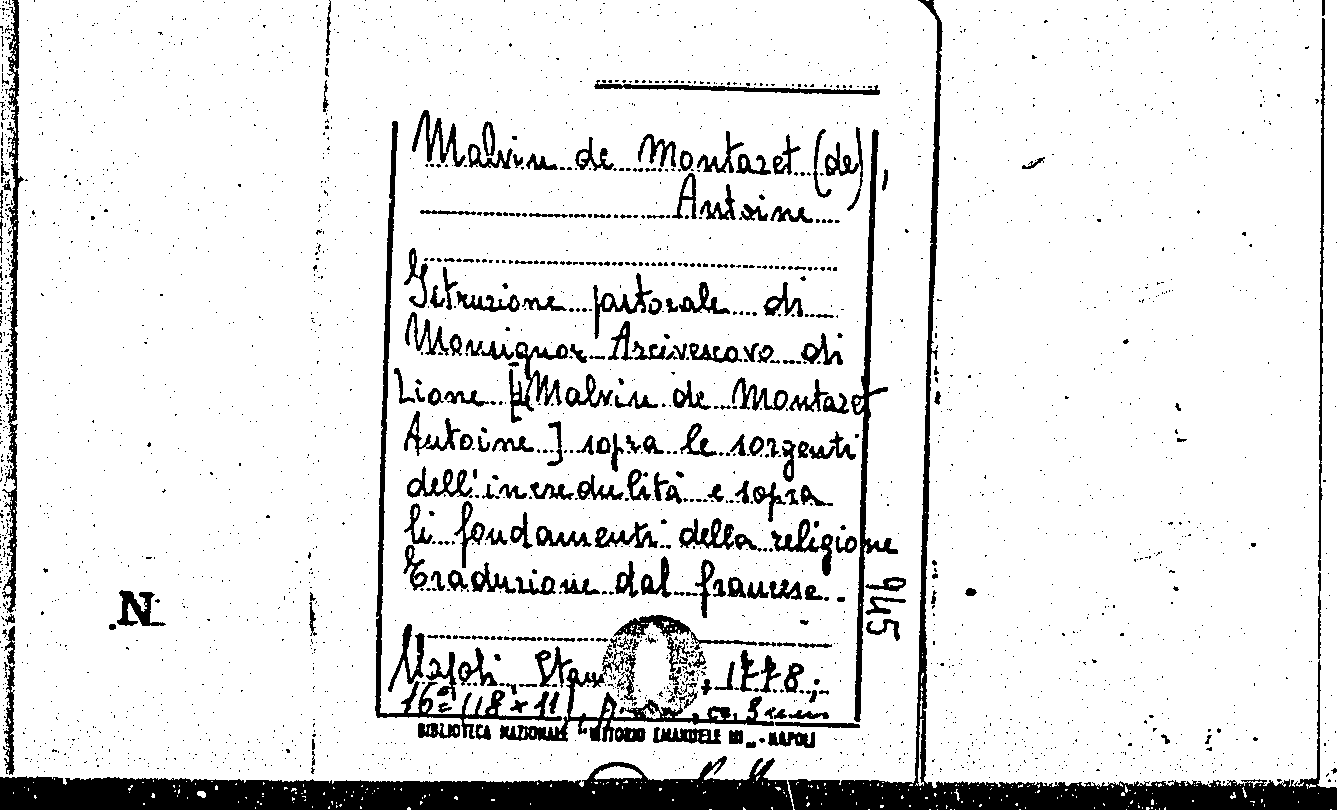 Malvin de Montazet (de),
Antoine
Istruzione pastorale di
Monsignor Arcivescovo di
Lione [Malvin de Montazet
Antoine] sopra le sorgenti
dell'incredulità e sopra
li fondamenti della religione
Traduzione dal francese.
945
N
Napoli, Stam , 1778;
16° (18 x 11),
BIBLIOTECA NAZIONALE "VITTORIO EMANUELE III" - NAPOLI